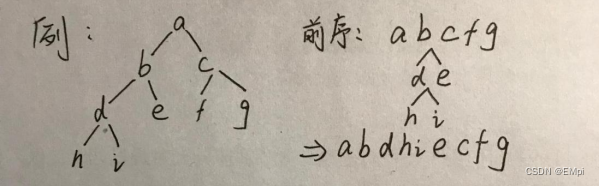 例：
a
b c
d e f g
h i
前序: a b c f g
d e
h i
⇒ a b d h i e c f g
CSDN @EMpi